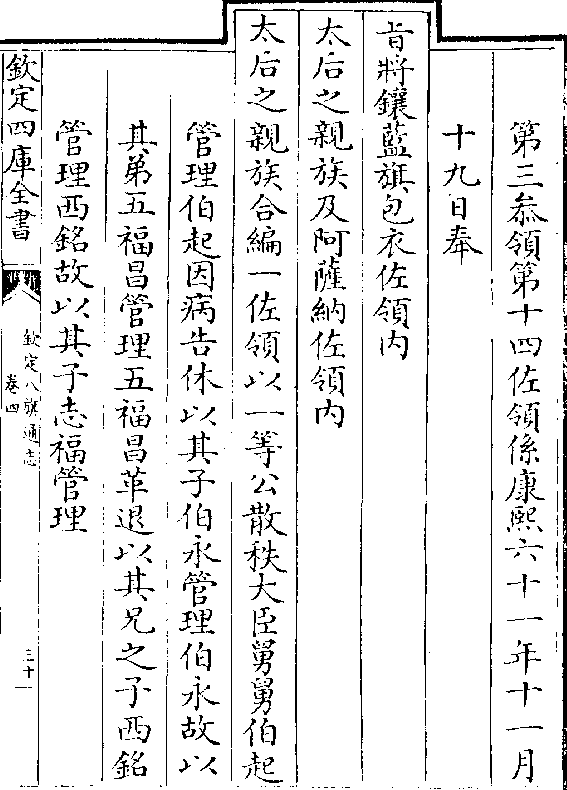 第三叅領第十四佐領係康熙六十一年十一月
十九日奉
旨將鑲藍旗包衣佐領内
太后之親族及阿薩納佐領内
太后之親族合編一佐領以一等公散秩大臣舅舅伯起
管理伯起因病告休以其子伯永管理伯永故以
其弟五福昌管理五福昌革退以其兄之子西銘
管理西銘故以其子志福管理
欽定四庫全書
欽定八旗通志
卷四
三十一